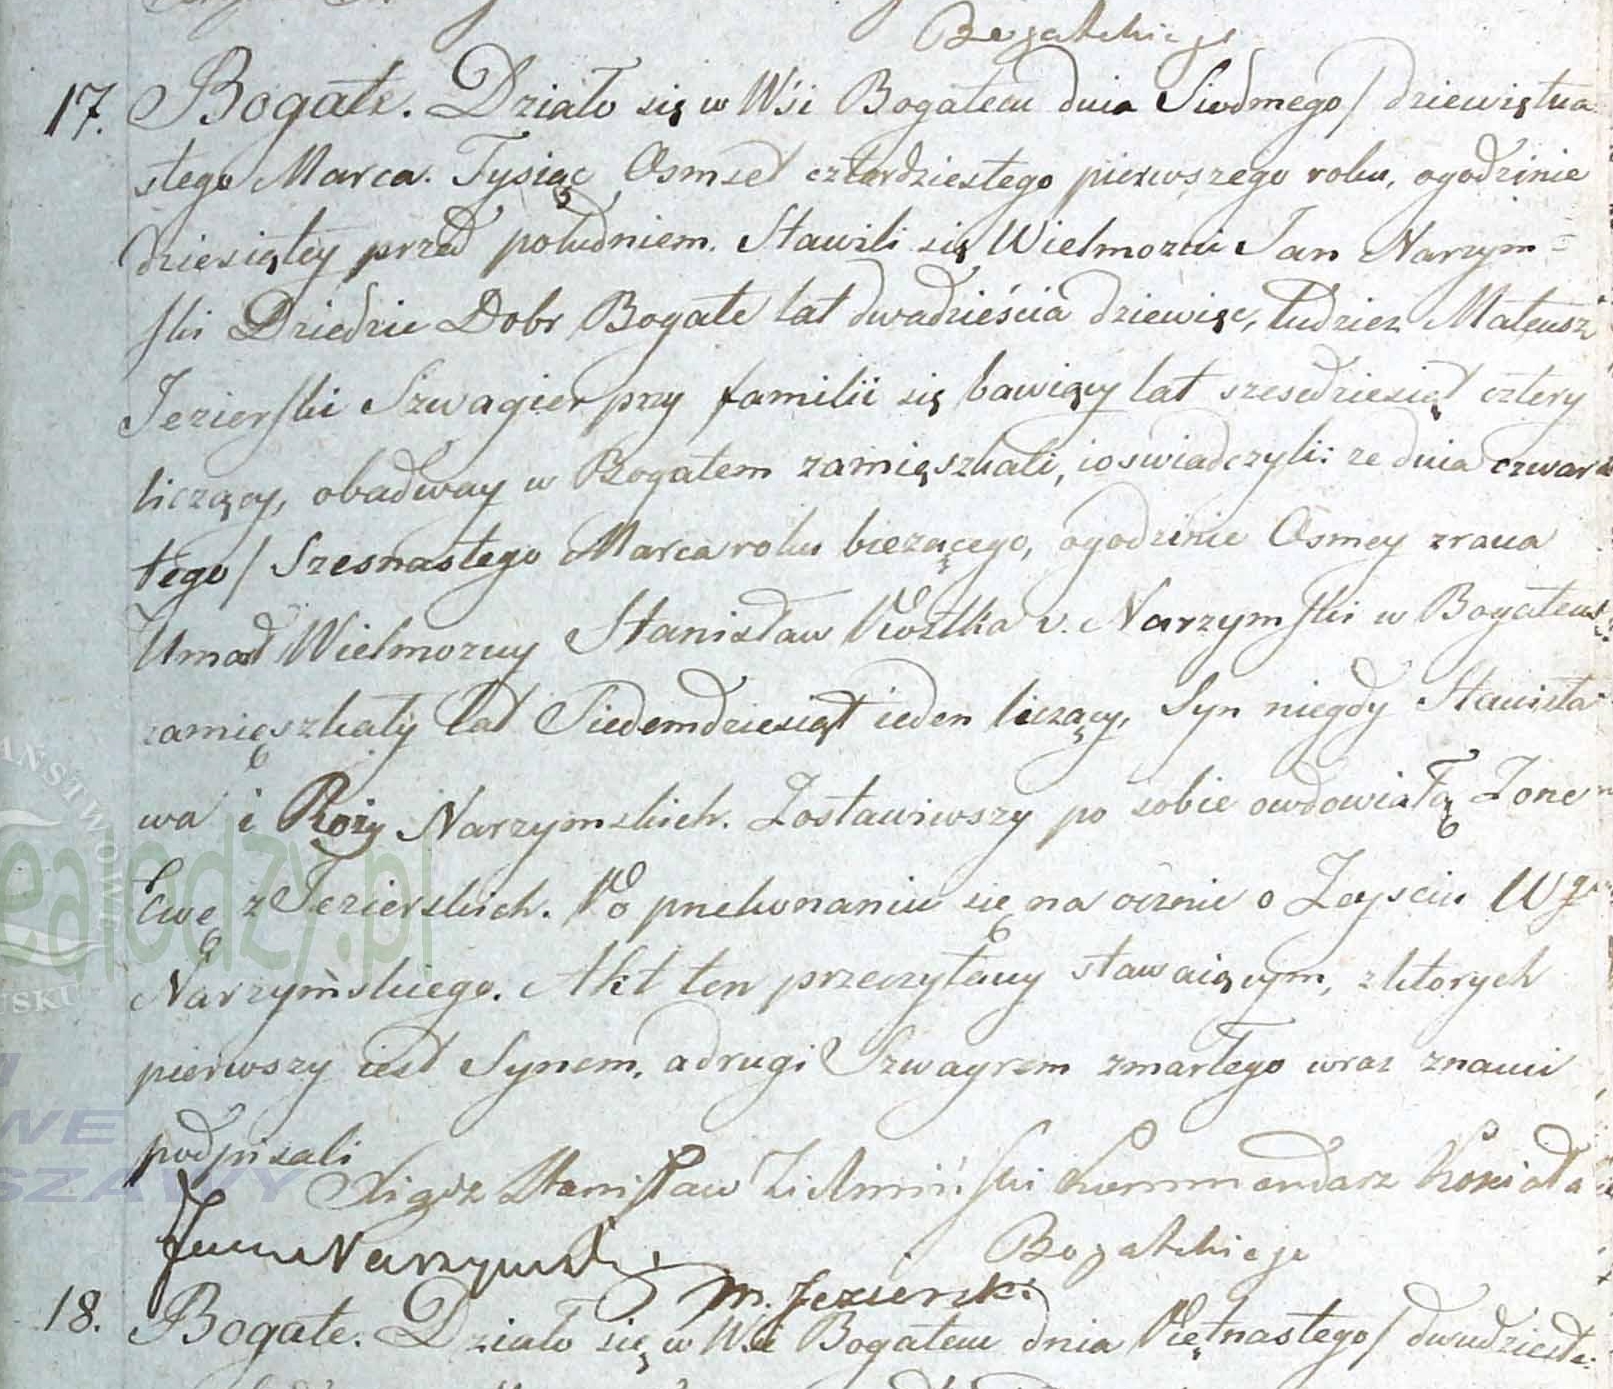 Bogatskiego
17. Bogate. Działo się w Wsi Bogatem dnia Siodmego / dziewiętna
stego Marca. Tysiąc Osmset czterdziestego pierwszego roku, ogodzinie
dziesiątey przed południem. Stawili się Wielmozni Jan Narzym=
ski Dziedzic Dobr Bogate lat dwadzieścia dziewięc, tudziez Mateusz
Jezierski Szwagier przy familii się bawiący lat szesdziesiąt cztery
liczący, obadway w Bogatem zamięszkali, i oswiadczyli: ze dnia czwar
tego / Szesnastego Marca roku biezącego, ogodzinie Osmey zrana
Umarł Wielmozny Stanisław Kostka v. Narzymski w Bogatem
zamięszkały lat Siedemdziesiąt ieden liczący, Syn niegdy Stanisła
wa i Roży Narzymskich. Zostawiwszy po sobie owdowiałą Zone
Ewę z Jezierskich. Po przekonaniu się na ocznie o Zeysciu Wgo
Narzymskiego. Akt ten przeczytany stawaiącym, z ktorych
pierwszy iest Synem, a drugi Szwagrem zmarłego wraz znami
podpisali
Xiądz Stanisław Kommendarz Koscioła
Bogatskiego
Jan Narzymski
M. Jezierski
18. Bogate. Działo się w Wsi Bogatem dnia Piętnastego / dwudzieste
ealodzy.pl